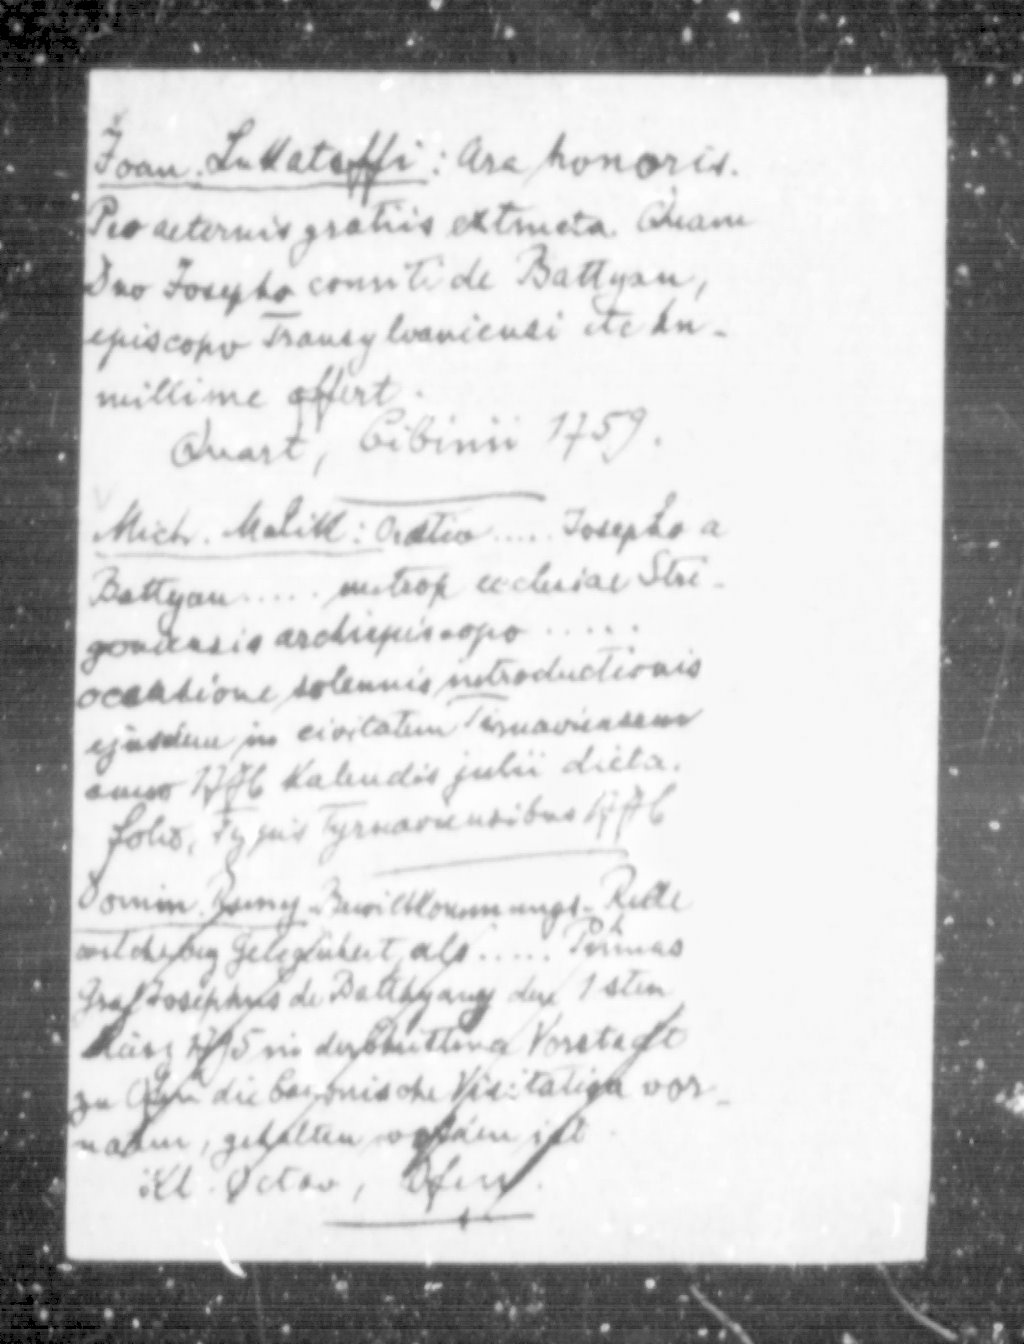 Joan. Lukatsffi: Ara honoris.
Pro aeternis gratiis extructa. Quam
Dno Josepho comiti de Battyan,
episcopo Transylvaniensi etc hu-
millime offert.
Quart, Cibinii 1759.
Mich. Malik: Oratio ..... Josepho a
Battyan ..... metrop ecclesiae Stri-
goniensis archiepiscopo .....
occasione solennis introductionis
ejusdem in civitatem Tirnaviensem
anno 1776 Kalendis julii dicta.
folio, Typis Tyrnaviensibus 1776
Domin. Bewillkommungs-Rede
welche bey Gelegenheit, als ..... Primas
Graf Josephus de Batthyany den 1sten
März 1795 in der Vorstadt
zu Ofen die canonische Visitation vor-
nahm, gehalten ist
Kl. Octav, Ofen.